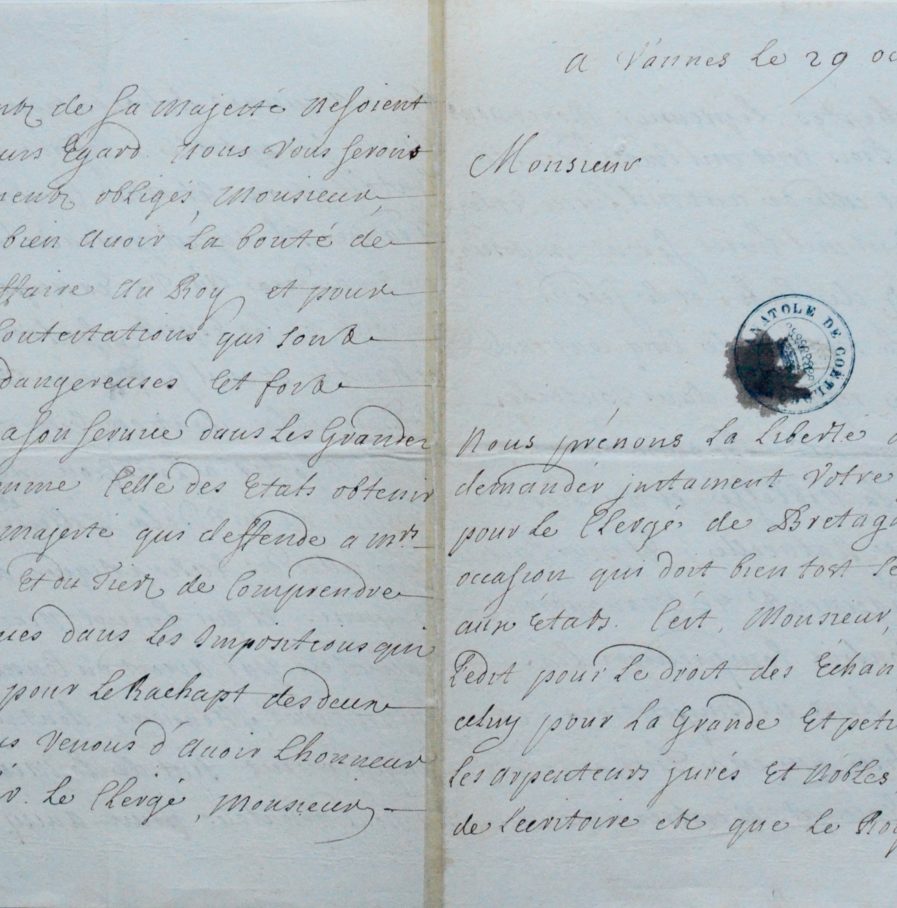 de Sa Majesté Nesoient
Egard. Nous Vous Serons
obligés, Monsieur
bien Avoir La bonté de
ffaire du Roy et pour
Contestations qui sont
dangereuses Et fort
ason Service dans Les Grandes
mme Celle des Etats obtenir
Majesté qui deffende a Mrs
Et du Tiers de Comprendre
ues dans Les Impositions qui
pour Le Rachapt des deux
s Venons d'Avoir Lhonneur
Le Clergé, Monsieur
A Vannes Le 29 oc
Monsieur
ATOLE DE COËTL
Nous prénons La Liberté d
demandér justament Votre
pour Le Clergé de Bretag
occasion qui doit bien tost Se
aux Etats. C'est, Monsieur,
L'edit pour Le droit des Echan
celuy pour La Grande Et peti
Les arpenteurs jurés Et Nobles
de Lecritoire etc que Le Roy